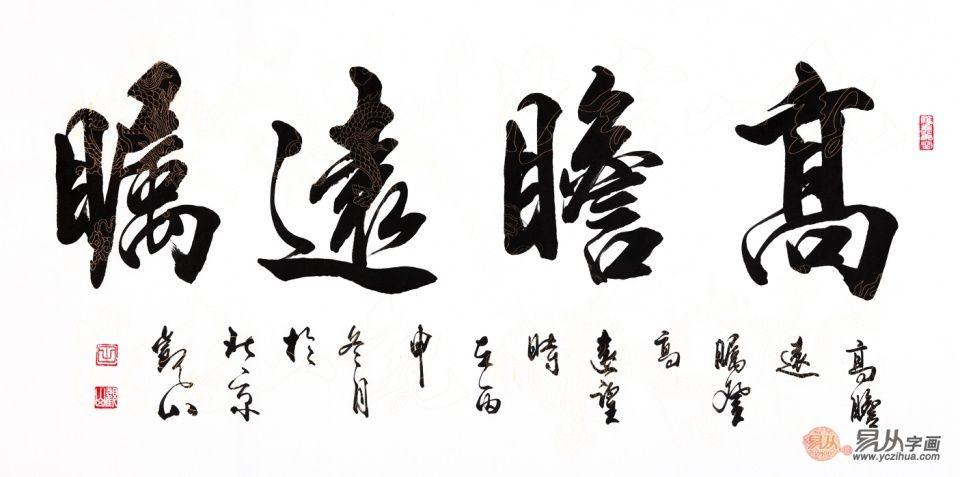 高瞻遠瞩
高瞻
遠
瞩登
高
遠望
時
在丙
申
冬月
於
北京
觀山
易从
易从字画
www.yczihua.com